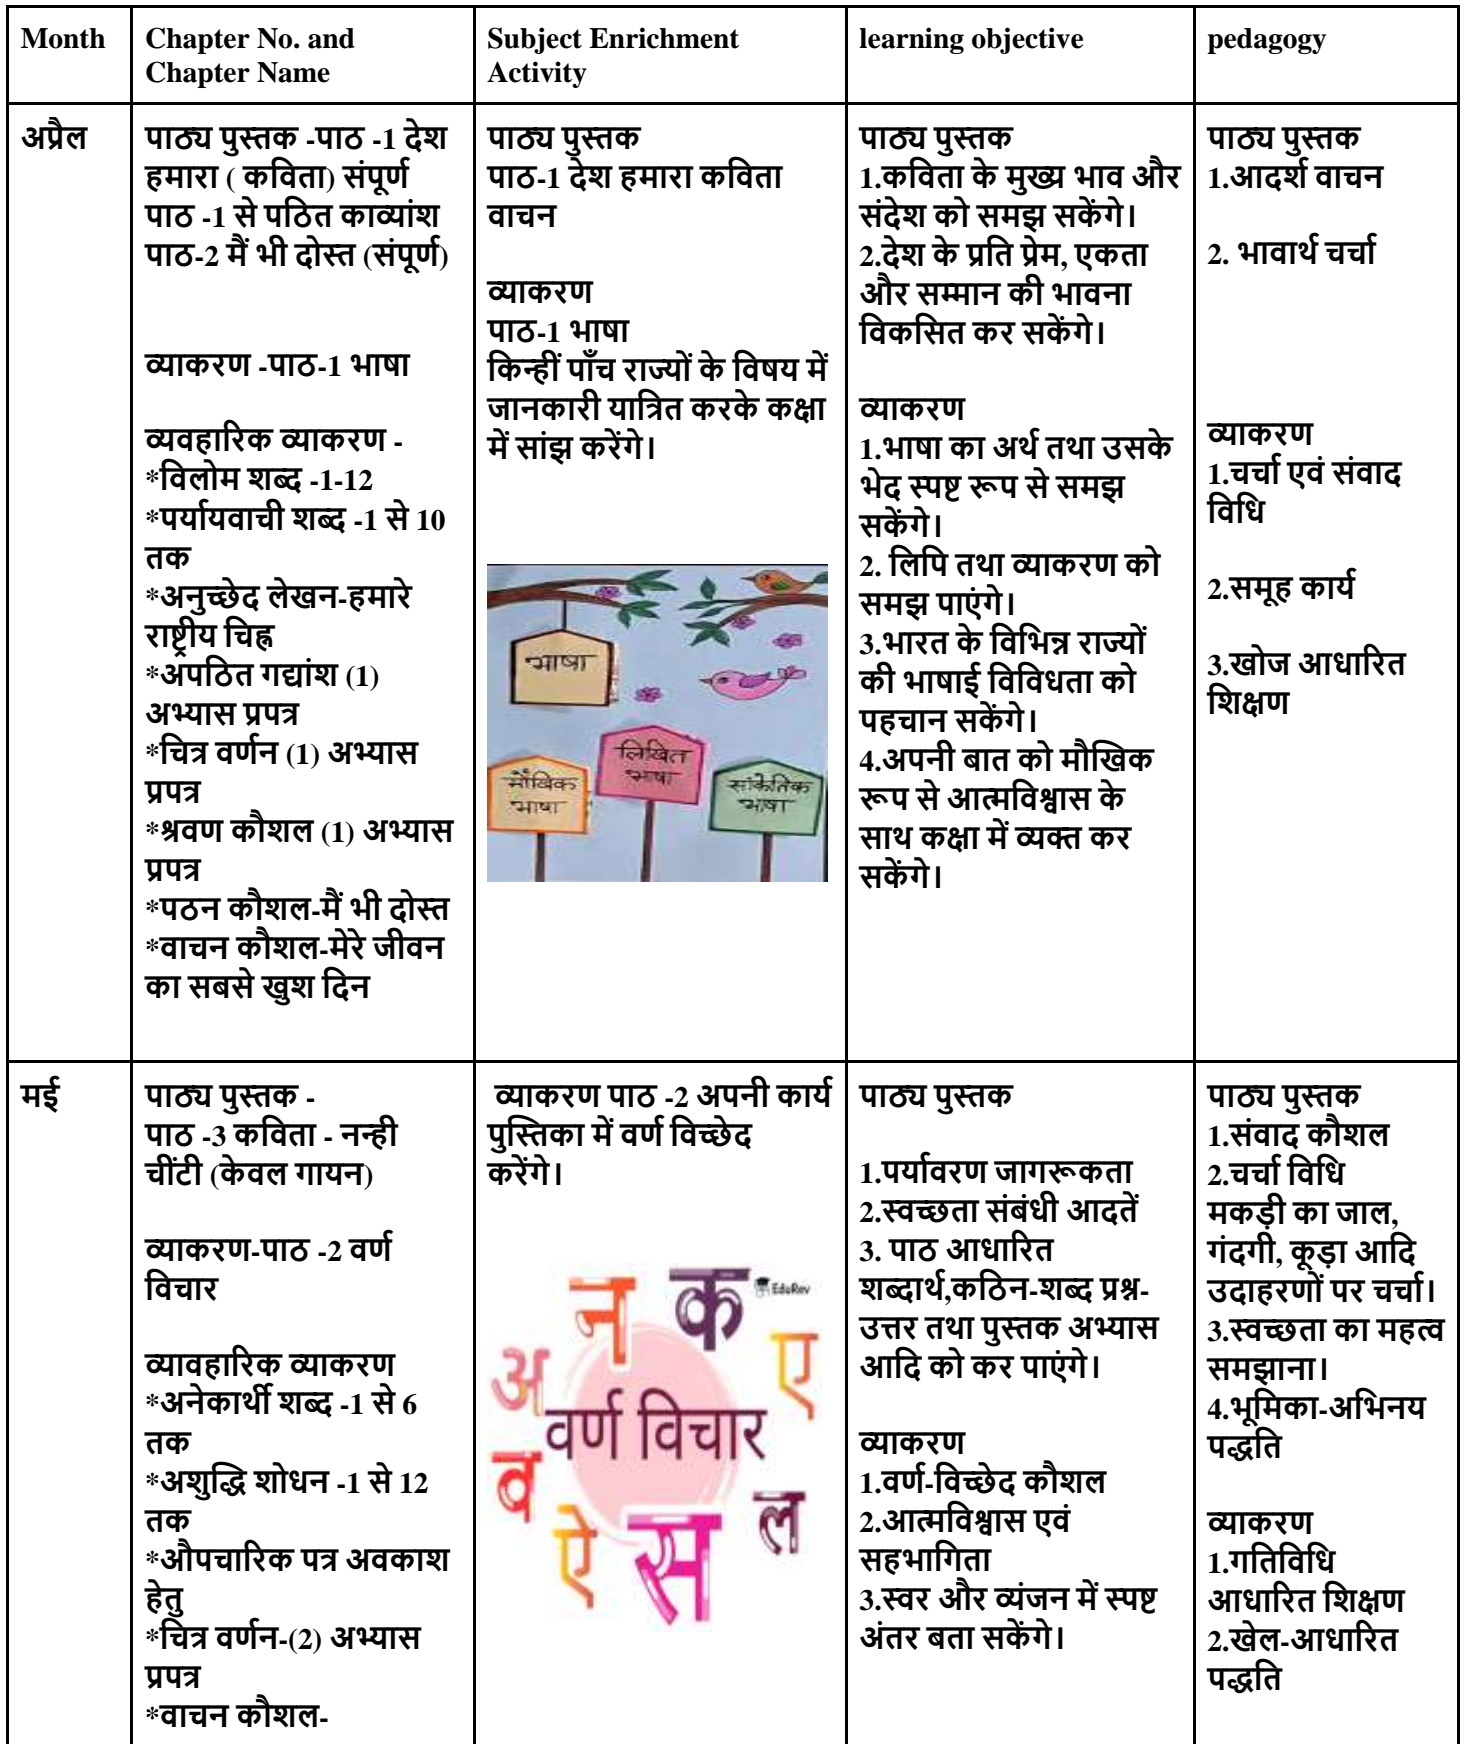 Month
Chapter No. and
Chapter Name
Subject Enrichment
Activity
learning objective
pedagogy
अप्रैल
पाठ्य पुस्तक -पाठ -1 देश
हमारा ( कविता) संपूर्ण
पाठ -1 से पठित काव्यांश
पाठ-2 मैं भी दोस्त (संपूर्ण)
व्याकरण -पाठ-1 भाषा
व्यवहारिक व्याकरण -
*विलोम शब्द -1-12
*पर्यायवाची शब्द -1 से 10
तक
*अनुच्छेद लेखन-हमारे
राष्ट्रीय चिह्न
*अपठित गद्यांश (1)
अभ्यास प्रपत्र
*चित्र वर्णन (1) अभ्यास
प्रपत्र
*श्रवण कौशल (1) अभ्यास
प्रपत्र
*पठन कौशल-मैं भी दोस्त
*वाचन कौशल-मेरे जीवन
का सबसे खुश दिन
पाठ्य पुस्तक
पाठ-1 देश हमारा कविता
वाचन
व्याकरण
पाठ-1 भाषा
किन्हीं पाँच राज्यों के विषय में
जानकारी यात्रित करके कक्षा
में सांझ करेंगे।
भाषा
लिखित
भाषा
मौखिक
भाषा
सांकेतिक
भाषा
पाठ्य पुस्तक
1.कविता के मुख्य भाव और
संदेश को समझ सकेंगे।
2.देश के प्रति प्रेम, एकता
और सम्मान की भावना
विकसित कर सकेंगे।
व्याकरण
1.भाषा का अर्थ तथा उसके
भेद स्पष्ट रूप से समझ
सकेंगे।
2. लिपि तथा व्याकरण को
समझ पाएंगे।
3.भारत के विभिन्न राज्यों
की भाषाई विविधता को
पहचान सकेंगे।
4.अपनी बात को मौखिक
रूप से आत्मविश्वास के
साथ कक्षा में व्यक्त कर
सकेंगे।
पाठ्य पुस्तक
1.आदर्श वाचन
2. भावार्थ चर्चा
व्याकरण
1.चर्चा एवं संवाद
विधि
2.समूह कार्य
3.खोज आधारित
शिक्षण
मई
पाठ्य पुस्तक -
पाठ -3 कविता - नन्ही
चींटी (केवल गायन)
व्याकरण-पाठ -2 वर्ण
विचार
व्यावहारिक व्याकरण
*अनेकार्थी शब्द -1 से 6
तक
*अशुद्धि शोधन -1 से 12
तक
*औपचारिक पत्र अवकाश
हेतु
*चित्र वर्णन-(2) अभ्यास
प्रपत्र
*वाचन कौशल-
व्याकरण पाठ -2 अपनी कार्य
पुस्तिका में वर्ण विच्छेद
करेंगे।
EduRev
न क
अ ए
वर्ण विचार
व ल
ऐ स
पाठ्य पुस्तक
1.पर्यावरण जागरूकता
2.स्वच्छता संबंधी आदतें
3. पाठ आधारित
शब्दार्थ,कठिन-शब्द प्रश्न-
उत्तर तथा पुस्तक अभ्यास
आदि को कर पाएंगे।
व्याकरण
1.वर्ण-विच्छेद कौशल
2.आत्मविश्वास एवं
सहभागिता
3.स्वर और व्यंजन में स्पष्ट
अंतर बता सकेंगे।
पाठ्य पुस्तक
1.संवाद कौशल
2.चर्चा विधि
मकड़ी का जाल,
गंदगी, कूड़ा आदि
उदाहरणों पर चर्चा।
3.स्वच्छता का महत्व
समझाना।
4.भूमिका-अभिनय
पद्धति
व्याकरण
1.गतिविधि
आधारित शिक्षण
2.खेल-आधारित
पद्धति